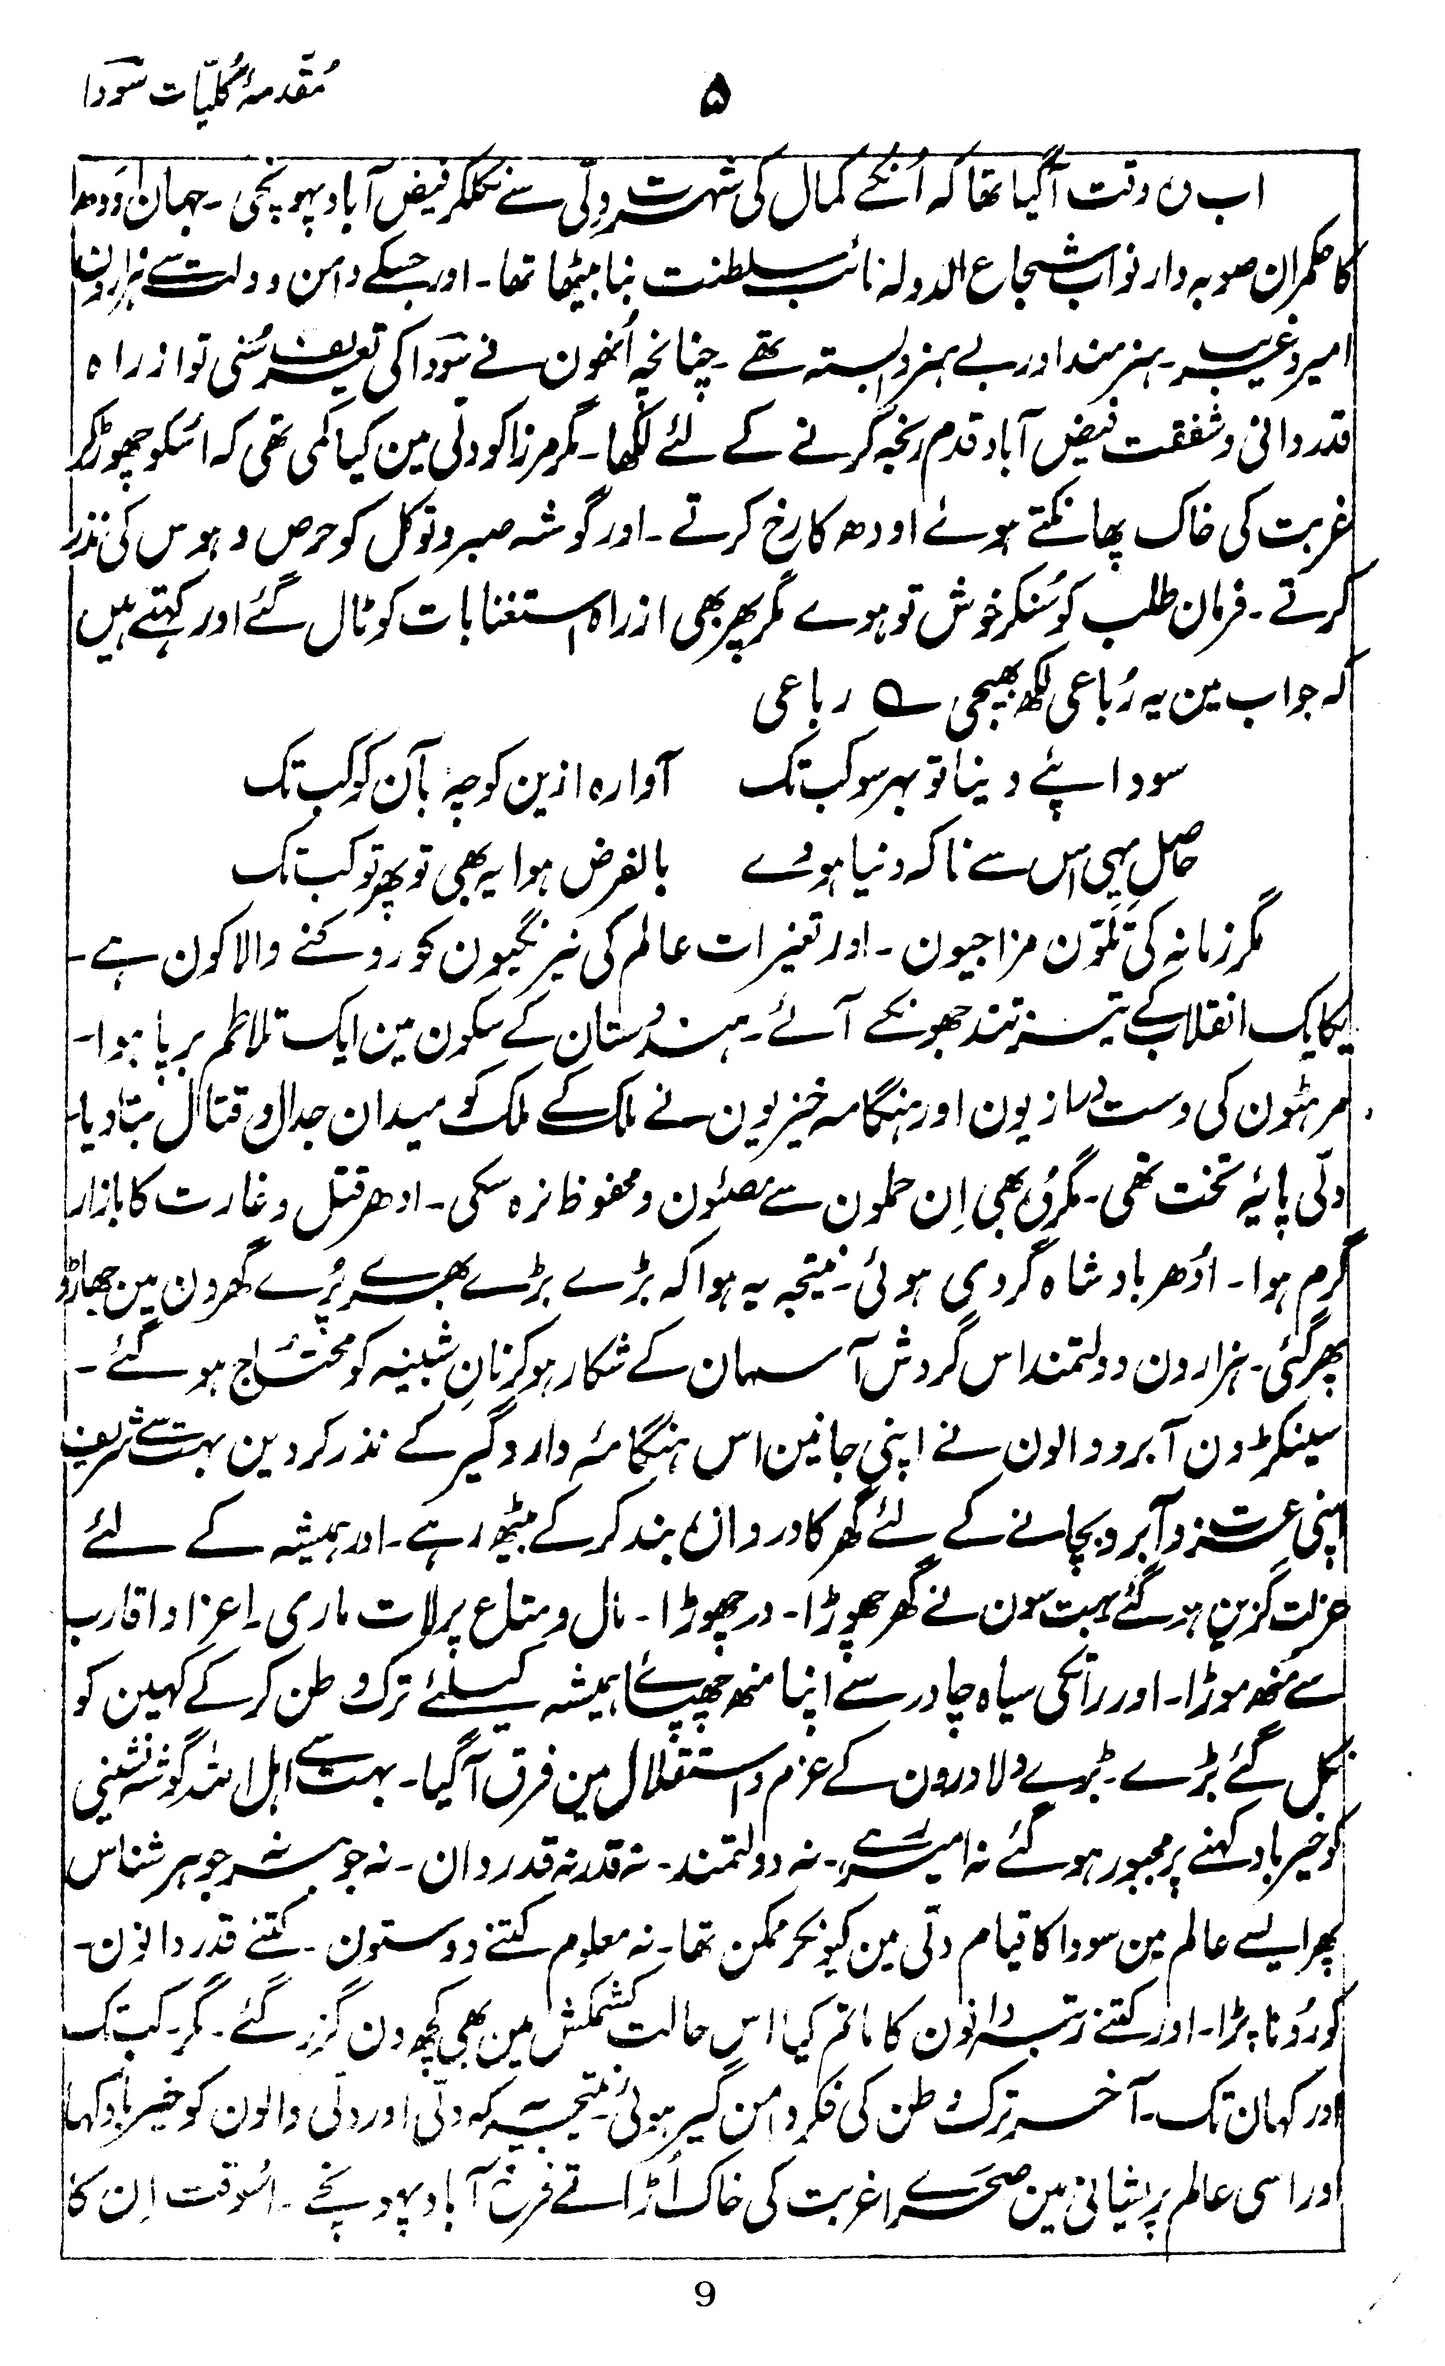 مُقدمۂ کلیّات سوؔدا
۵
اب وہ وقت آگیا تھا کہ اُنکے کمال کی شہرت دلّی سے نکلکر فیض آباد پہونچی ۔ جہان اَودھ
کا حکمران صوبہ دار نواب شجاع الدولہ نائب سلطنت بنا بیٹھا تھا ۔ اور جسکے دامن دولت سے ہزارون
امیر و غریب ۔ ہنرمند اور بے ہنر وابستہ تھے ۔ چنانچہ اُنھون نے سوؔدا کی تعریف سُنی تو از راہ
قدردانی و شفقت فیض آباد قدم رنجہ کرنے کے لئے لکھا ۔ مگر مرزا کو دلّی مین کیا کمی تھی کہ اسکو چھوڑکر
غربت کی خاک پھانکتے ہوئے اودھ کا رخ کرتے ۔ اور گوشہ صبر و توکل کو حرص و ہوس کی نذر
کرتے ۔ فرمان طلب کو سُنکر خوش تو ہوے مگر پھر بھی از راہ استغنا بات کو ٹال گئے اور کہتے ہیں
کہ جواب مین یہ رُباعی لکھ بھیجی ؎ رباعی
سودا پئے دینا تو بہر سو کب تک آوارہ ازین کوچہ بآن کو کب تک
حاصل یہی اس سے نا کہ دنیا ہووے بالفرض ہوا یہ بھی تو پھر تو کب تک
مگر زمانہ کی تَلَوّن مزاجیون ۔ اور تغیرات عالم کی نیرنگیون کو روکنے والا کون ہے ۔
یکایک انقلاب کے تیز تند جھونکے آئے ۔ ہندوستان کے سکون مین ایک تلاطم برپا ہوا ۔
مرہٹون کی دست درازیون اور ہنگامہ خیزیون نے ملک کے ملک کو میدان جدال و قتال بنادیا
دلّی پایۂ تخت تھی ۔ مگر وہ بھی اِن حملون سے مصئون و محفوظ نرہ سکی ۔ ادھر قتل و غارت کا بازار
گرم ہوا ۔ اُدھر بادشاہ گردی ہوئی ۔ نتیجہ یہ ہوا کہ بڑے بڑے بھرے پُرے گھرون مین جھاڑو
پھر گئی ۔ ہزارون دولتمند اس گردش آسمان کے شکار ہوکر نانِ شبینہ کو محتاج ہوگئے ۔
سینکڑون آبرو والون نے اپنی جانین اس ہنگامۂ دار و گیر کے نذر کردین بہت سے شریف
اپنی عزت و آبرو بچانے کے لئے گھر کا دروازہ بند کرکے بیٹھ رہے ۔ اور ہمیشہ کے لئے
عزلت گزین ہوگئے بہت سون نے گھر چھوڑا ۔ در چھوڑا ۔ مال و متاع پر لات ماری ۔ اعزا و اقارب
سے منھ موڑا ۔ اور رات کی سیاہ چادر سے اپنا منھ چھپائے ہمیشہ کیلئے ترک وطن کرکے کہین کو
نکل گئے بڑے ۔ بڑے دلاورون کے عزم و استقلال مین فرق آگیا ۔ بہت سے اہل اللہ گوشہ نشینی
کو خیرباد کہنے پر مجبور ہوگئے نہ امیر رہے ۔ نہ دولتمند ۔ نہ قدر نہ قدردان ۔ نہ جوہر نہ جوہر شناس
پھر ایسے عالم مین سودا کا قیام دلّی مین کیونکر ممکن تھا ۔ نہ معلوم کتنے دوستون ۔ کتنے قدردانون ۔
کو رونا پڑا ۔ اور کتنے رتبہ دانون کا ماتم کیا اس حالت کشمکش مین بھی کچھ دن گزر گئے ۔ مگر ۔ کب تک
اور کہان تک ۔ آخر ترک وطن کی فکر دامن گیر ہوئی ۔ نتیجہ یہ کہ دلّی اور دلّی والون کو خیرباد کہا
اور اسی عالم پریشانی مین صحراے غربت کی خاک اُڑاتے فرخ آباد پہونچے ۔ اسوقت اِن کا
9